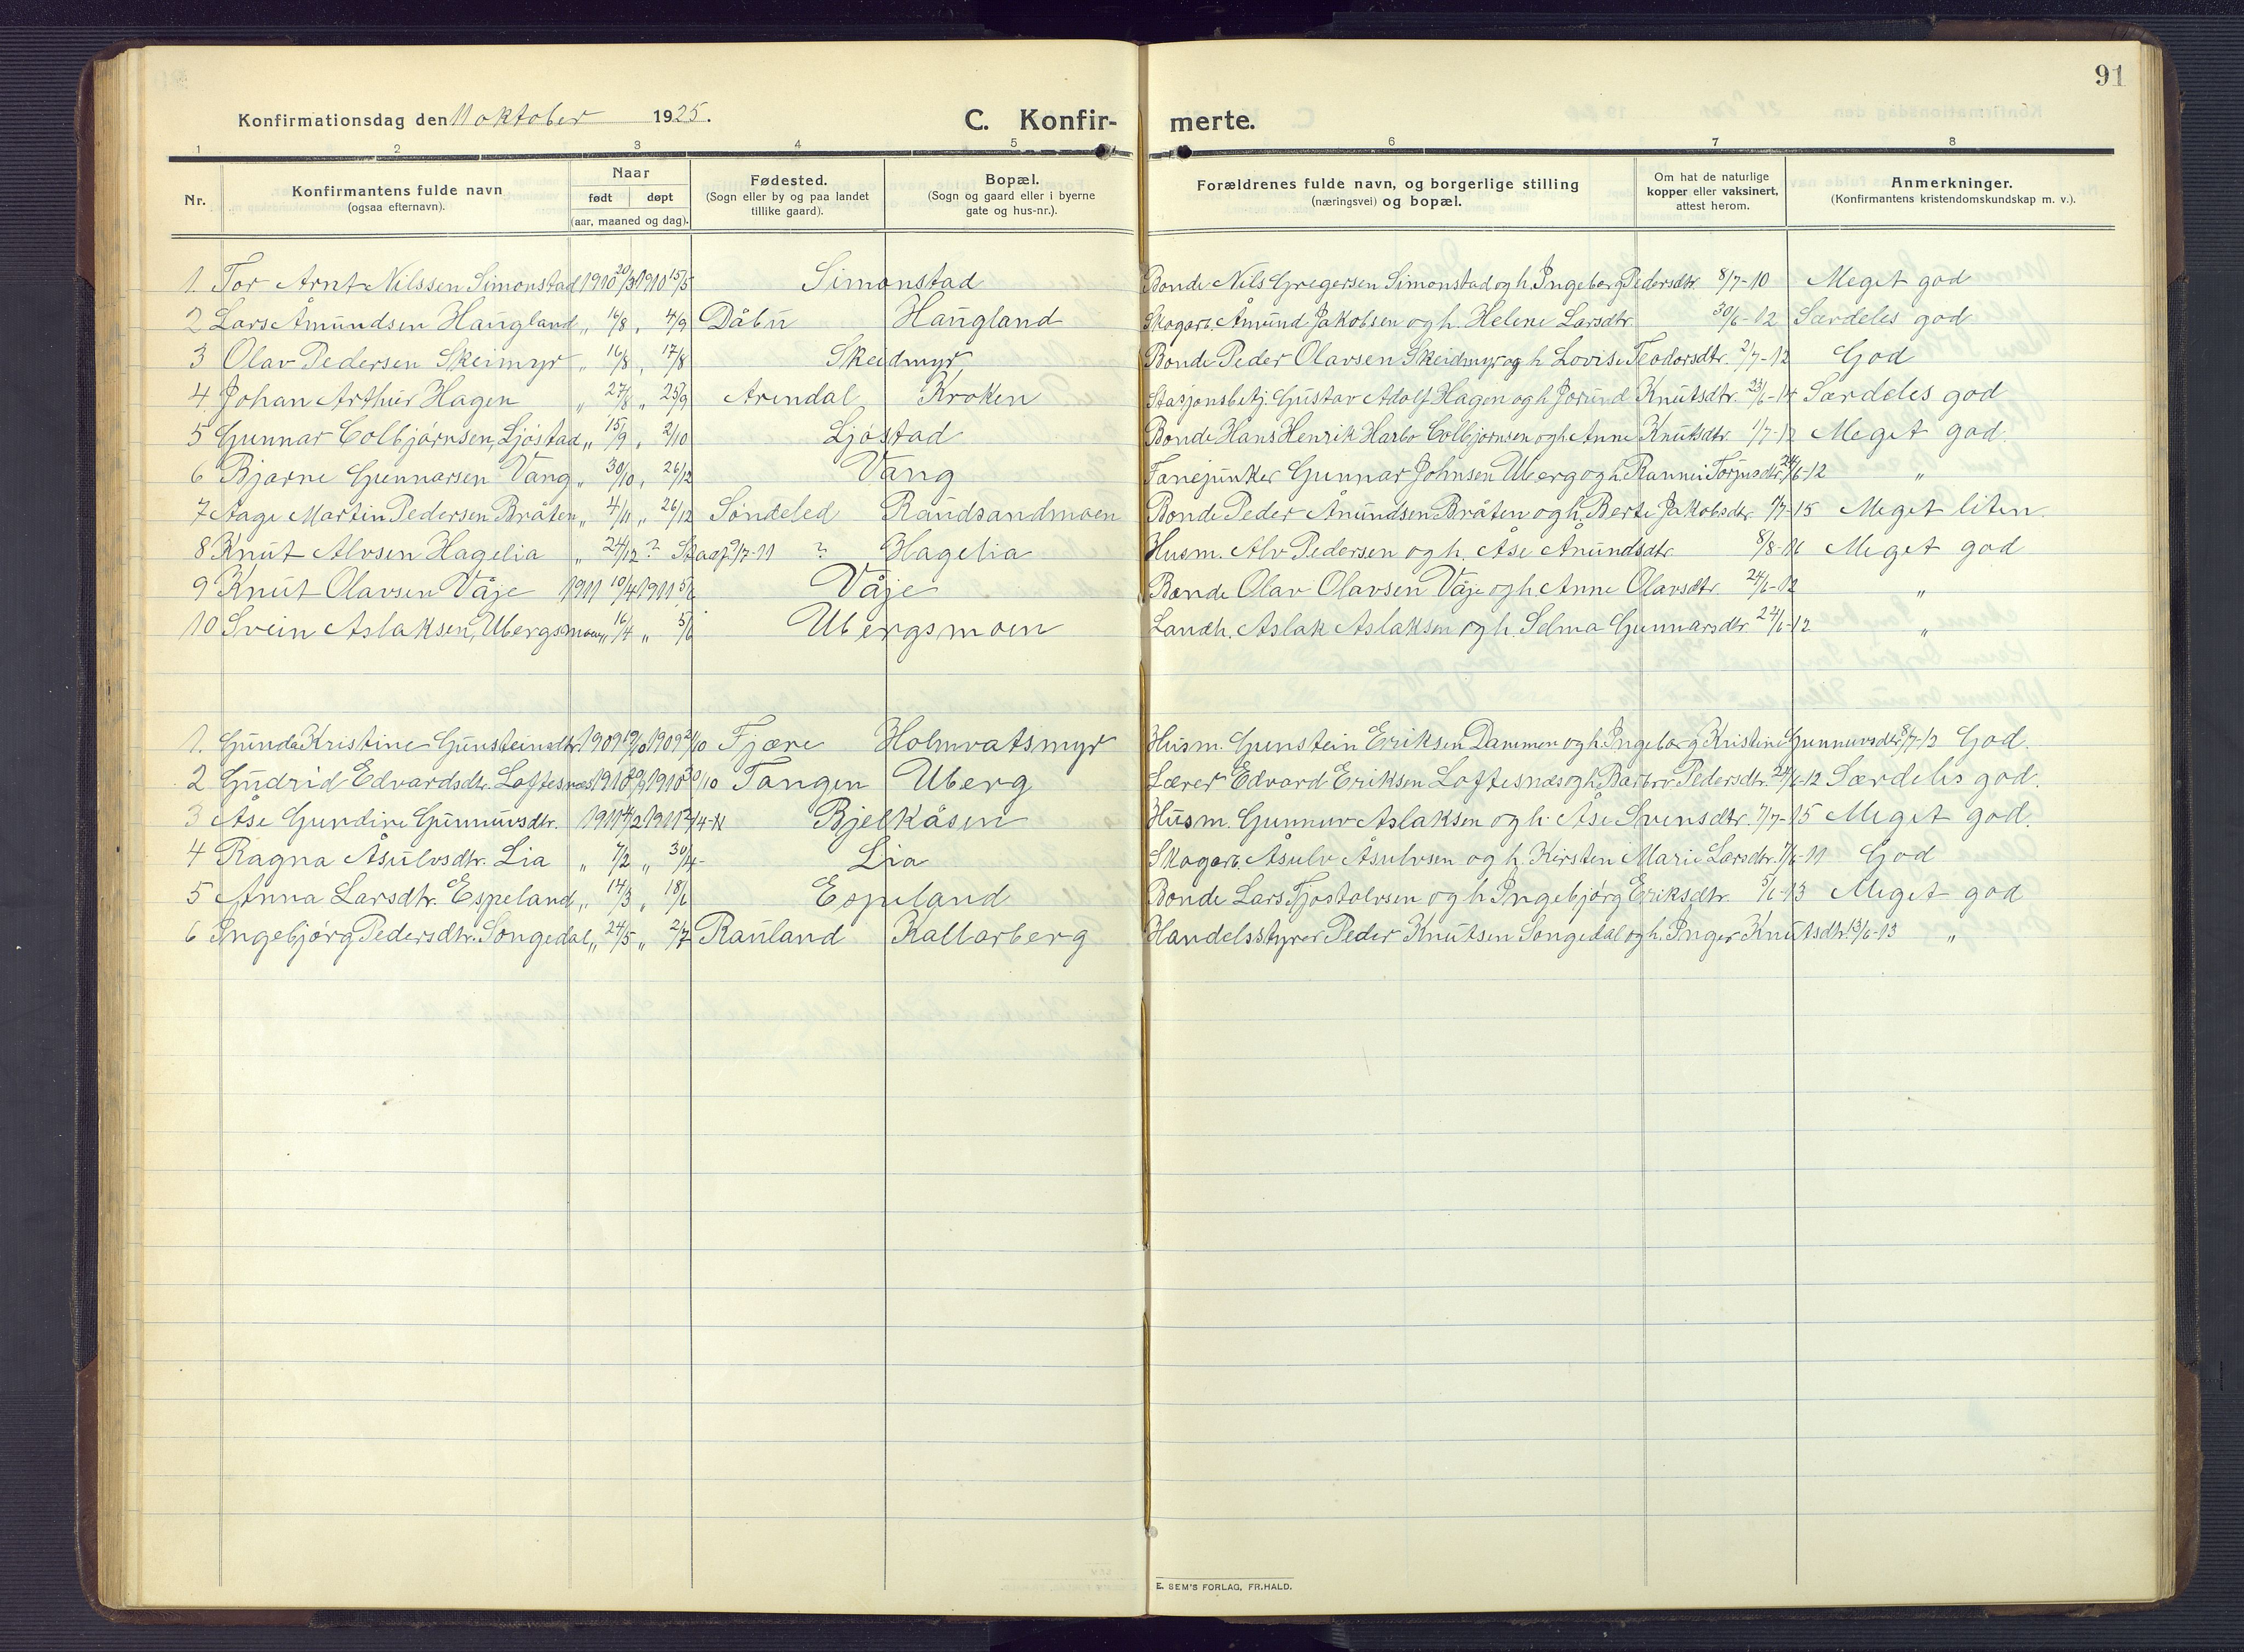 91
Konfirmationsdag den 11 oktober 1925.
C. Konfirmerte.
1 2 3 4 5 6 7 8
Nr. Konfirmantens fulde navn (ogsaa efternavn). Naar født døpt (aar, maaned og dag). Fødested. (Sogn eller by og paa landet tillike gaard). Bopæl. (Sogn og gaard eller i byerne gate og hus-nr.). Forældrenes fulde navn, og borgerlige stilling (næringsvei) og bopæl. Om hat de naturlige kopper eller vaksinert, attest herom. Anmerkninger. (Konfirmantens kristendomskundskap m. v.).
1. Tor Arnt Nilssen Simonstad 1910 20/3 1910 15/5 Simonstad Bonde Nils Gregersen Simonstad og h. Ingeborg Pedersdtr. 8/7-10 Meget god
2 Lars Åmundsen Haugland „ 16/8 „ 4/9 Dåbu Haugland Skogarb. Åmund Jakobsen og h. Helene Larsdtr. 30/6-12 Særdeles god
3 Olav Pedersen Skeimyr „ 16/8 „ 17/8 Skeidmyr Bonde Peder Olavsen Skeidmyr og h Lovise Teodorsdtr. 2/7-12 God
4. Johan Arthur Hagen „ 27/8 „ 25/9 Arendal Kroken Stasjonsbetj. Gustav Adolf Hagen og h Jorund Knutsdtr. 23/6-14 Særdeles god
5 Gunnar Colbjørnsen, Ljøstad „ 15/9 „ 2/10 Ljøstad Bonde Hans Henrik Harbo Colbjørnsen og h Anne Knutsdtr. 1/7-12 Meget god.
6 Bjarne Gunnarsen Vang „ 30/10 „ 26/12 Vang Fanejunker Gunnar Johnsen Uberg og h Rannei Torjusdtr. 24/6-12 „
7 Aage Martin Pedersen Bråten „ 4/11 „ 26/12 Søndeled Raudsandmoen Bonde Peder Ånundsen Bråten og h. Berte Jakobsdtr. 7/7-15 Meget liten.
8 Knut Alvsen Hagelia „ 24/12 ? Staaf. 9/7-11 ? Hagelia Husm. Alv Pedersen og h. Åse Ånundsdtr 8/8-16 Meget god
9 Knut Olavsen Våje 1911 10/4 1911 5/6 Våje Bonde Olav Olavsen Våje og h Anne Olavsdtr. 24/6-12 „
10 Svein Aslaksen, Ubergsmoen „ 16/4 „ 5/6 Ubergsmoen Landh. Aslak Aslaksen og h. Selma Gunnarsdtr 24/6-12 „
1. Gunda Kristine Gunsteinsdtr. 1909 1909 Fjære Holmvatsmyr Husm. Gunstein Eriksen Dammen og h. Ingeborg Kristine Gunnuvsdtr. 3/7-12 God.
2 Gudrid Edvardsdtr. Loftesnæs 1910 1910 30/10 Tangen Uberg Lærer Edvard Eriksen Loftesnæs og h. Barbro Pedersdtr. 24/6-12 Særdeles god.
3 Åse Gundine Gunnuvsdtr. 1911 4/2 1911 2/4-11 Bjelkåsen Husm. Gunnuv Aslaksen og h. Åse Svensdtr. 7/7-15 Meget god.
4 Ragna Åsulvsdtr. Lia „ 7/2 „ 30/4- Lia Skogarb. Åsulv Åsulvsen og h. Kirsten Marie Larsdtr. 7/6-11 God
5 Anna Larsdtr. Espeland „ 14/3 „ 18/6 Espeland Bonde Lars Tjøstolvsen og h Ingebjørg Eriksdtr. 5/6-13 Meget god
6 Ingebjørg Pedersdtr. Songedal „ 24/5 „ 2/7 Rauland Kallarberg Handelsstyrer Peder Knutsen Songedal og h. Inger Knutsdtr. 13/6-13 „
E. SEM'S FORLAG, FR.HALD.